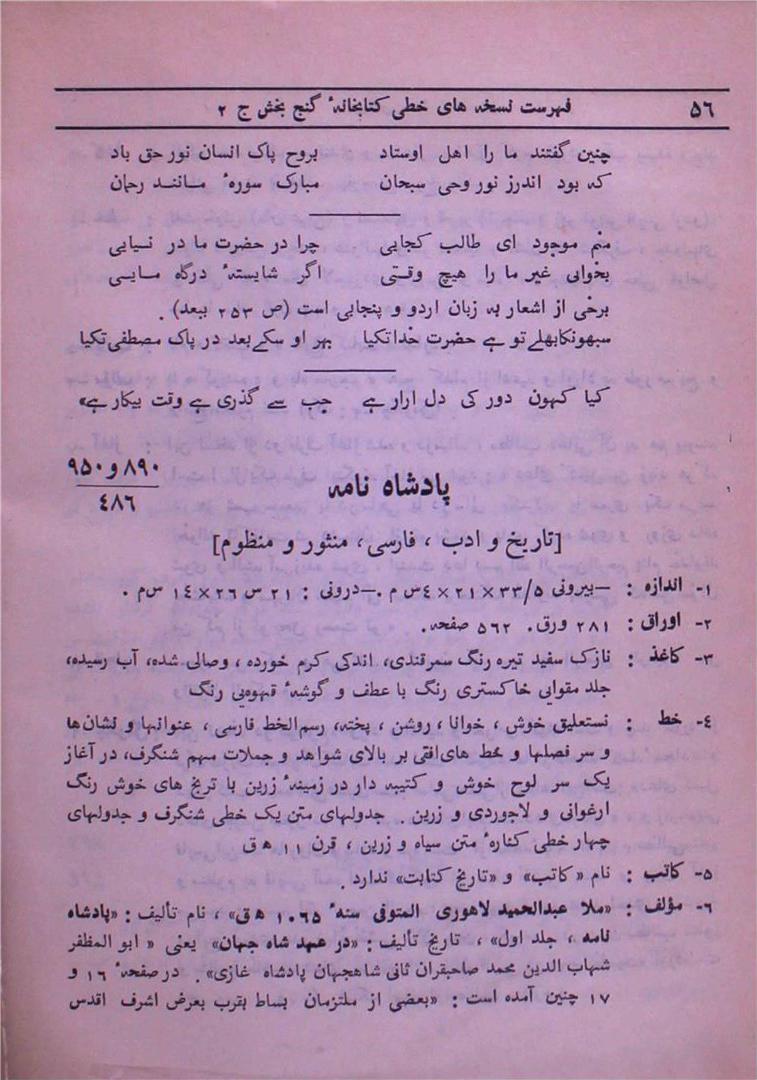 ۵۶ فهرست نسخه های خطی کتابخانهٔ گنج بخش ج ۲
چنین گفتند ما را اهل اوستاد بروح پاک انسان نور حق باد
که بود اندرز نور وحی سبحان مبارک سورهٔ مانند رحمان
منم موجود ای طالب کجایی چرا در حضرت ما در نیایی
بخوانی غیر ما را هیچ وقتی اگر شایستهٔ درگاه مایی
برخی از اشعار به زبان اردو و پنجابی است (ص ۲۵۳ ببعد) .
سبهونکابهلے تو ہے حضرت خدا تکیا بہر او سکے بعد در پاک مصطفی تکیا
کیا کہون دور کی دل ارار ہے جب سے گذری ہے وقت بیکار ہے»
۸۹۰ و ۹۵۰
۴۸۶
پادشاه نامه
[تاریخ و ادب ، فارسی، منثور و منظوم]
۱- اندازه : —بیرونی ۳۳/۵ × ۲۱ × ۴س م .—درونی : ۲۱ س ۲۶ × ۱۴ س م .
۲- اوراق : ۲۸۱ ورق. ۵۶۲ صفحه.
۳- کاغذ : نازک سفید تیره رنگ سمرقندی، اندکی کرم خورده ، وصالی شده، آب رسیده،
جلد مقوایی خاکستری رنگ با عطف و گوشهٔ قهوه‌یی رنگ
۴- خط : نستعلیق خوش ، خوانا ، روشن ، پخته، رسم‌الخط فارسی ، عنوانها و نشان‌ها
و سر فصلها و خط های‌افقی بر بالای شواهد و جملات مهم شنگرف، در آغاز
یک سر لوح خوش و کتیبه دار در زمینهٔ زرین با ترنج های خوش رنگ
ارغوانی و لاجوردی و زرین . جدولهای متن یک خطی شنگرف و جدولهای
چهار خطی کنارهٔ متن سیاه و زرین ، قرن ۱۱ ه ق
۵- کاتب : نام «کاتب» و «تاریخ کتابت» ندارد .
۶- مؤلف : «ملا عبدالحمید لاهوری المتوفی سنهٔ ۱۰۶۵ ه ق» ، نام تألیف: «پادشاه
نامه ، جلد اول» ، تاریخ تألیف : «در عهد شاه جهان» یعنی « ابو المظفر
شهاب الدین محمد صاحبقران ثانی شاهجهان پادشاه غازی» . در صفحهٔ ۱۶ و
۱۷ چنین آمده است : «بعضی از ملتزمان بساط بقرب بعرض اشرف اقدس